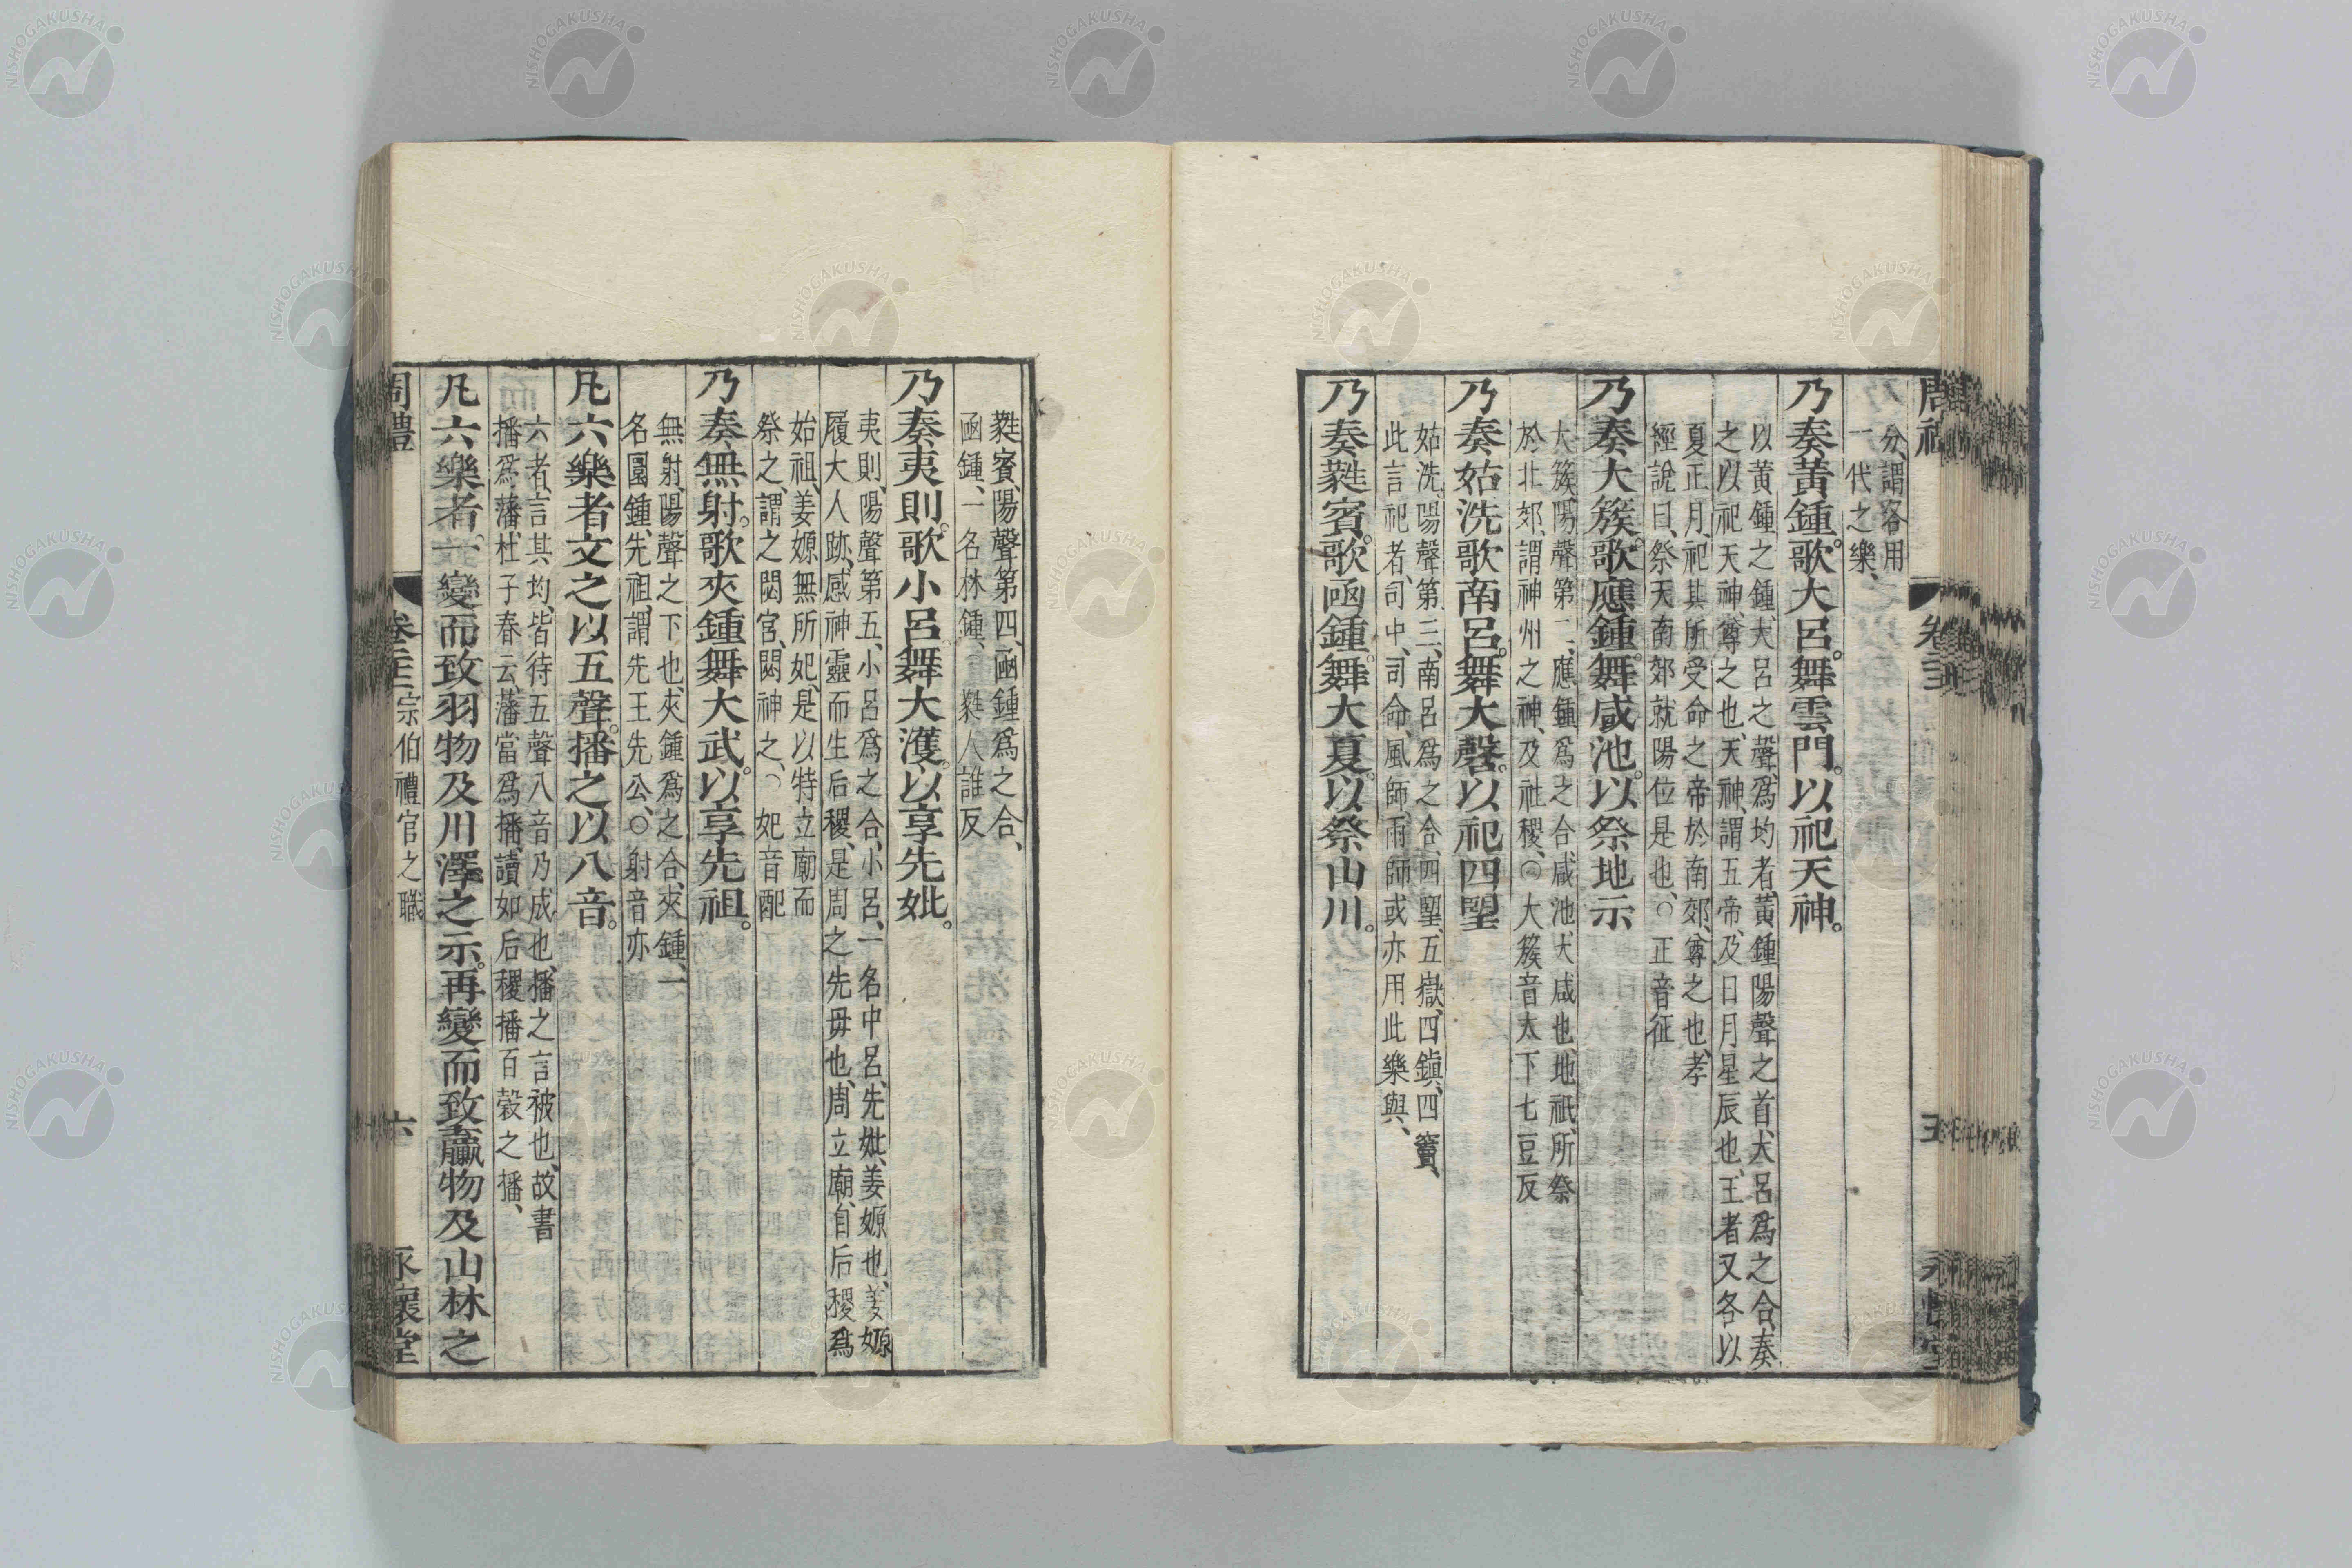 分、謂各用
一代之樂、
乃奏黃鍾。歌大呂。舞雲門。以祀天神。
以黃鍾之鍾、大呂之聲、爲均者、黃鍾陽聲之首、大呂爲之合、奏
之以祀天神、尊之也、天神、謂五帝、及日月星辰也、王者又各以
夏正月、祀其所受命之帝於南郊、尊之也、孝
經說曰、祭天南郊就陽位是也、〇正音征
乃奏大簇。歌應鍾。舞咸池。以祭地示
大簇、陽聲第二、應鍾爲之合、咸池、大咸也、地祇、所祭
於北郊、謂神州之神、及社稷、〇大簇音太下七豆反
乃奏姑洗歌南呂。舞大磬。以祀四望
姑洗、陽聲第三、南呂爲之合、四望、五嶽、四鎮、四竇、
此言祀者、司中、司命、風師、雨師、或亦用此樂與、
乃奏蕤賓。歌函鍾。舞大夏。以祭山川。
蕤賓、陽聲第四、函鍾爲之合、
函鍾、一名林鍾、 蕤人誰反
乃奏夷則。歌小呂。舞大濩。以享先妣。
夷則、陽聲第五、小呂爲之合、小呂、一名中呂、先妣、姜嫄也、姜嫄
履大人跡、感神靈而生后稷、是周之先母也、周立廟、自后稷爲
始祖、姜嫄無所妃、是以特立廟而
祭之、謂之閟宮、閟神之、〇妃音配
乃奏無射。歌夾鍾舞大武。以享先祖。
無射、陽聲之下也、夾鍾爲之合、夾鍾、一
名圜鍾、先祖、謂先王先公、〇射音亦
凡六樂者文之以五聲。播之以八音。
六者、言其均、皆待五聲八音乃成也、播之言被也、故書
播爲藩、杜子春云、藩當爲播、讀如后稷播百穀之播、
凡六樂者。一變而致羽物及川澤之示。再變而致臝物及山林之
周禮 卷二十二 宗伯禮官之職 六 永懷堂